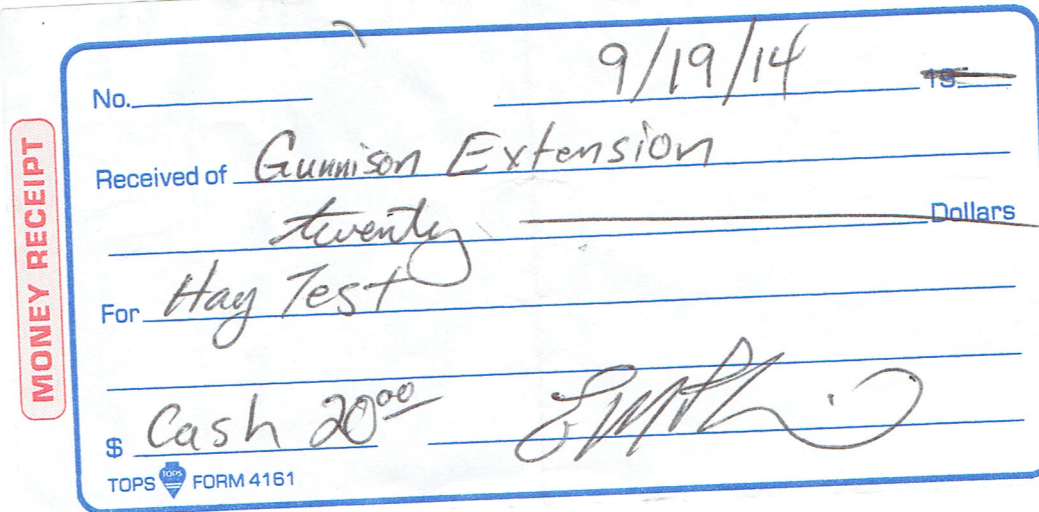 MONEY RECEIPT
No. 9/19/14 19
Received of Gunnison Extension
twenty Dollars
For Hay Test
$ Cash 20⁰⁰
TOPS TOPS FORM 4161